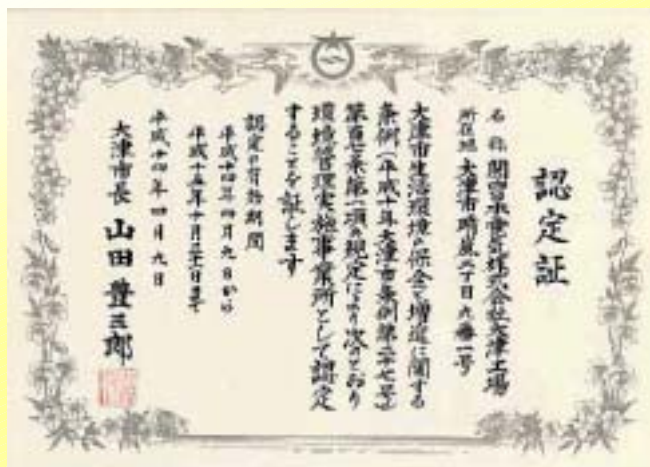 認定証
名称 関西日本電気株式会社大津工場
所在地 大津市晴嵐二丁目九番一号
大津市生活環境の保全と増進に関する
条例(平成十年大津市条例第二十七号)
第百七条第一項の規定により次のとおり
環境管理実施事業所として認定
することを証します
認定の有効期間
平成十四年四月九日から
平成十五年十月三十一日まで
平成十四年四月九日
大津市長 山田豊三郎